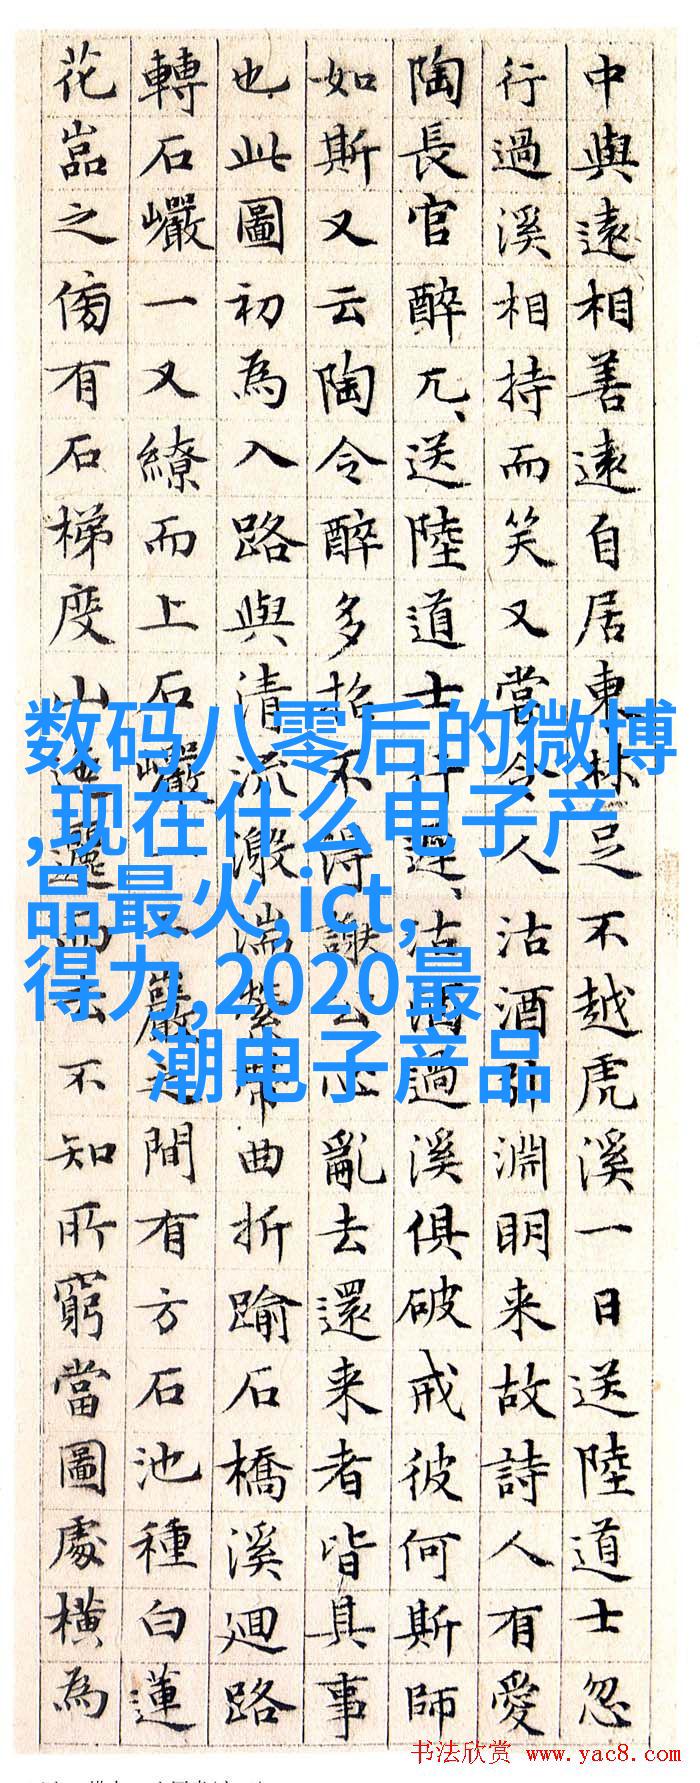 中與遠相善遠自居東林足不越虎溪一日送陸道士忽
行過溪相持而笑又嘗令人沽酒引淵明来故詩人有愛
陶長官醉兀、送陸道士行遲、沽酒過溪俱破戒彼何斯師
如斯又云陶令醉多招不得謝公心亂去還来者皆具事
也此圖初為入路與清流激湍縈帶曲折踰石橋溪廻路
轉石巖一又繚而上石巖一巖之間有方石池種白蓮
花嵓之傍有石梯度山迤邐而去不知所窮當圖處橫為
数码八零后的微博
,现在什么电子产
品最火,ict,
得力,2020最
潮电子产品
书法欣赏 www.yac8.com